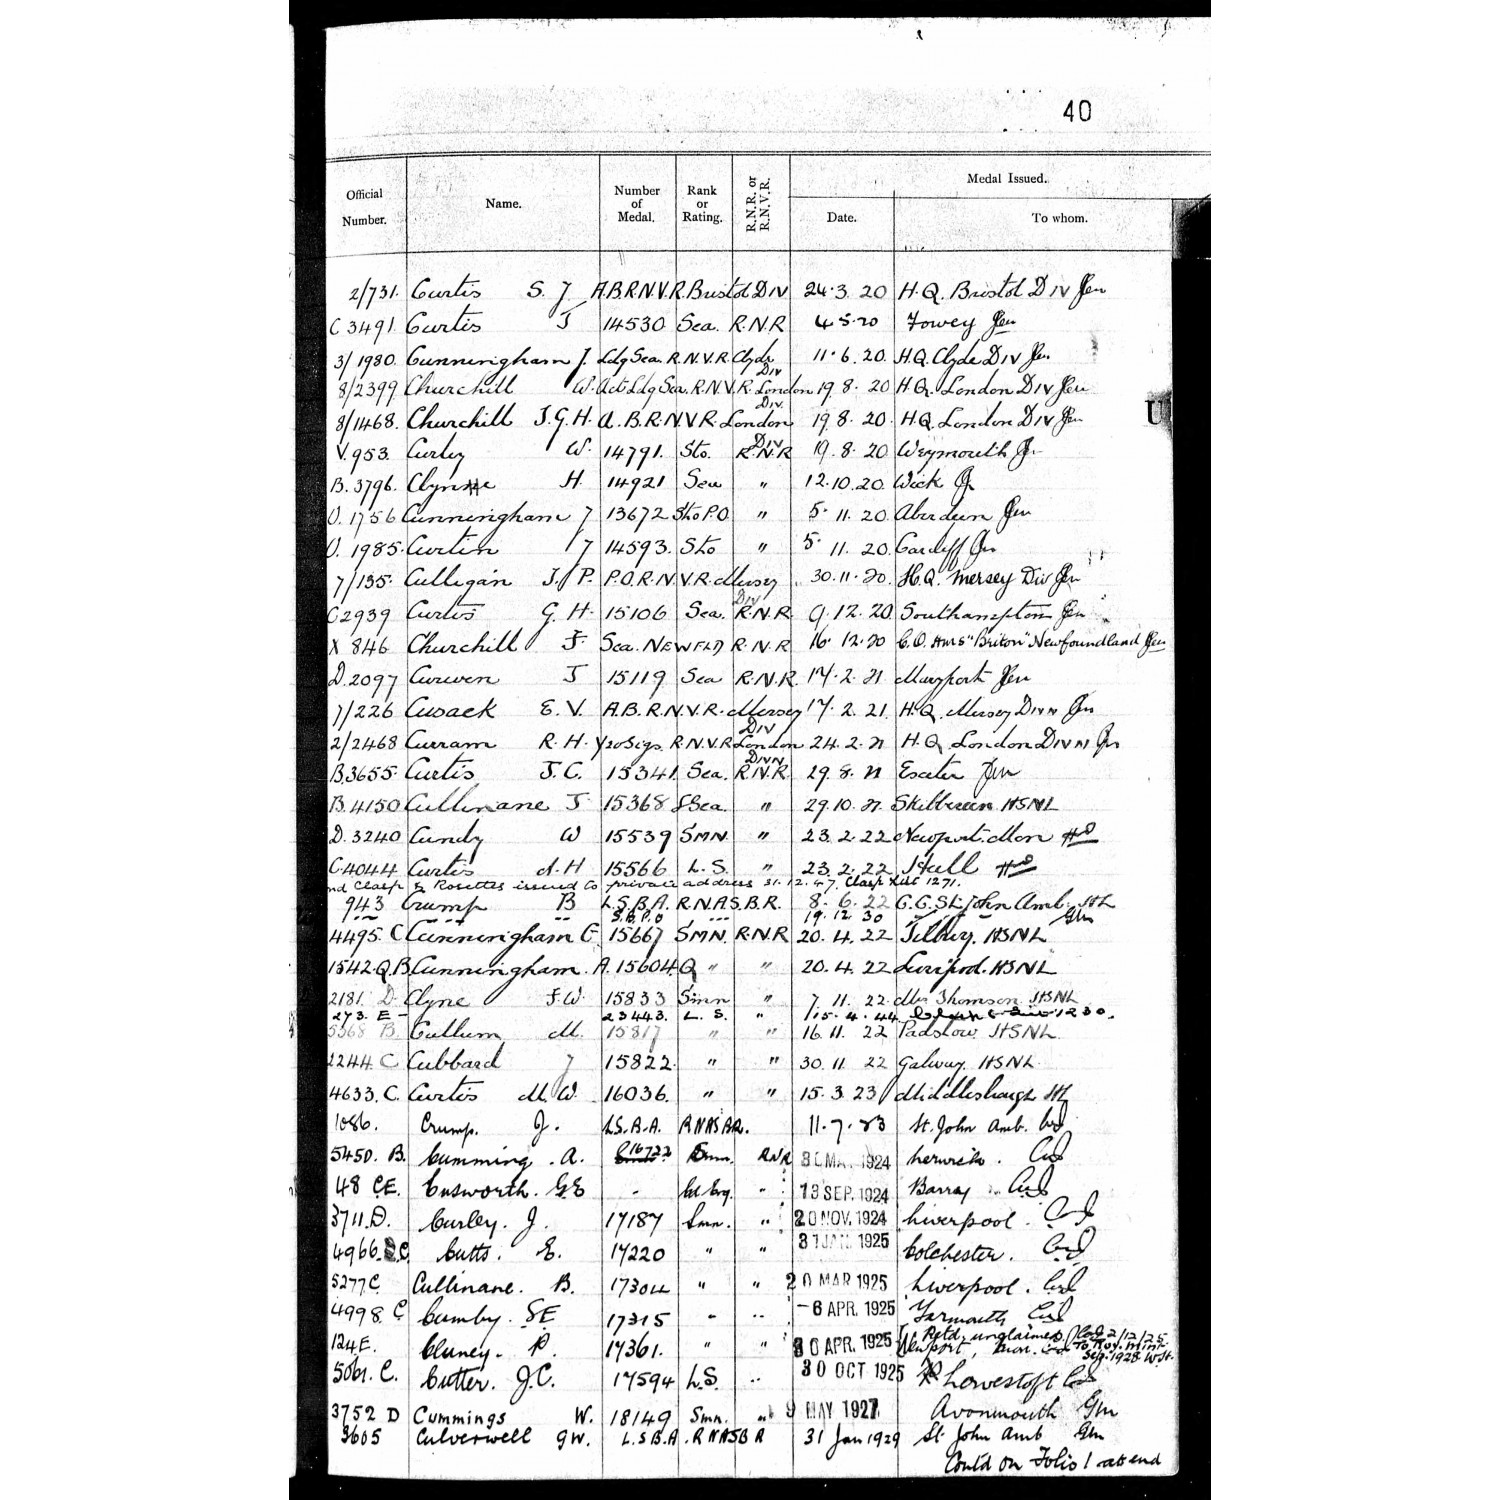 40
Official Number. Name. Number of Medal. Rank or Rating. R.N.R. or R.N.V.R. Medal Issued.
Date. To whom.
2/731. Curtis S. J A.B.R.N.V.R. Bristol Div 24.3.20 H.Q. Bristol Div
C 3491. Curtis J 14530 Sea. R.N.R 4.5.20 Fowey
3/1980. Cunningham J. Ldg Sea. R.N.V.R. Clyde Div 11.6.20. H.Q. Clyde Div
8/2399 Churchill W. Act Ldg Sea. R.N.V.R. London Div 19.8.20 H.Q. London Div
8/1468. Churchill J.G.H. A.B.R.N.V.R. London Div 19.8.20. H.Q. London Div
V. 953. Curley W. 14791. Sto. R.N.R 19.8.20 Weymouth
B. 3796. Clyne H. 14921 Sea " 12.10.20. Wick
U. 1756 Cunningham J 13672 Sto P.O " 5.11.20 Aberdeen
U. 1985. Curtin J 14593. Sto " 5.11.20. Cardiff
7/135. Culligan J. P. P.O.R.N.V.R. Mersey Div 30.11.20. H.Q. Mersey Div
C 2939 Curtis G. H. 15106 Sea. R.N.R. 9.12.20 Southampton
X 846 Churchill J. Sea. Newfld R.N.R 16.12.20 C.O. HMS "Briton" Newfoundland
D. 2097 Curwen J 15119 Sea R.N.R. 17.2.21 Maryport
7/226 Cusack E. V. A.B.R.N.V.R. Mersey Div 17.2.21. H.Q. Mersey Divn
2/2468 Curram R. H. Yeo Sigs. R.N.V.R London Divn 24.2.21 H.Q. London Divn
B. 3655. Curtis J. C. 15341 Sea. R.N.R. 29.8.21 Exeter
B. 4150 Cullinane J 15368 Sea. " 29.10.21. Skibbereen HSNL
D. 3240 Cundy W 15539 Smn. " 23.2.22 Newport. Mon
C. 4044 Curtis A. H 15566 L.S. " 23.2.22 Hull
nd Clasp & Rosettes issued to private address 31.12.47. Clasp List 1271.
943 Crump B L.S.B.A. R.N.A.S.B.R. 8.6.22 C.C. St. John Amb.
S.B.P.O 19.12.30
4495. C Cunningham G. 15667 Smn. R.N.R 20.4.22 Tilbury. HSNL
1542. Q.B. Cunningham. A. 15604 Q " " 20.4.22 Liverpool. HSNL
2181. D. Clyne J.W. 15833 Smn " 7.11.22. Mr Thomson HSNL
273. E - 23443. L.S. " 15.4.44 1230.
5368 B. Cullum M. 15817 " " 16.11.22 Padstow HSNL
2244. C Cubbard J 15822. " " 30.11.22 Galway. HSNL
4633. C. Curtis M. W. 16036. " " 15.3.23 Middlesbrough
1086. Crump. J. L.S.B.A. RNASBR. 11.7.23 St. John Amb.
5450. B. Cumming. A. 16722 Smn. RNR 1924 Lerwick.
48 CE. Cusworth. G.E - " 13 SEP. 1924 Barry
3711. D. Curley. J. 17187 Smn. " 20 NOV. 1924 Liverpool.
4966. C. Cutts. E. 17220 " " 31 JAN. 1925 Colchester.
5277 C. Cullinane. B. 17304 " " 20 MAR 1925 Liverpool.
4998. C Cumby. S E 17315 " " -6 APR. 1925 Yarmouth
124 E. Cluney. P. 17361. " " 30 APR. 1925 Newport, Mon. Retd. unclaimed 2/12/25 To Roy. Mint Sep. 1928
5061. C. Cutter. J.C. 17594 L.S. " 30 OCT 1925 Lowestoft
3752 D Cummings W. 18149 Smn. " 9 MAY 1927 Avonmouth
3605 Culverwell G W. L.S.B.A. RNASBR 31 Jan 1929 St. John Amb
Cont'd on Folio 1 at end